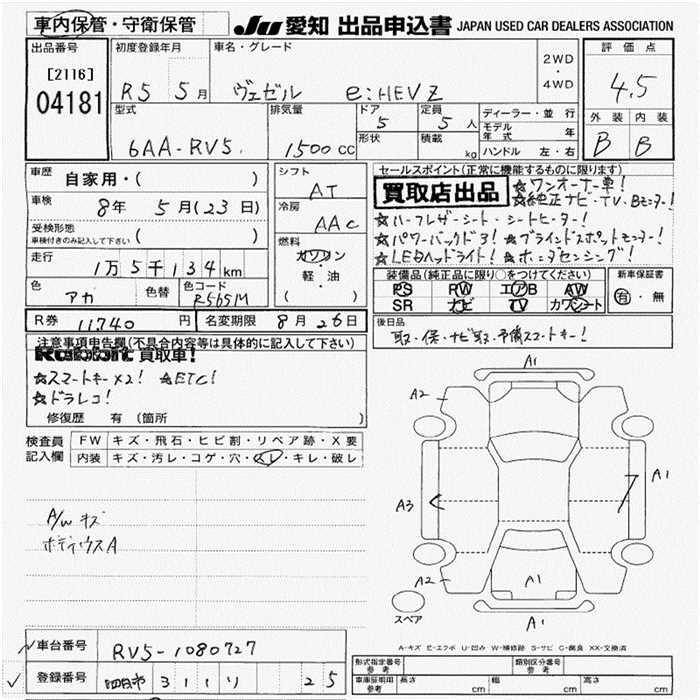 車内保管・守衛保管
JU 愛知 出品申込書 JAPAN USED CAR DEALERS ASSOCIATION
出品番号 初度登録年月 車名・グレード 評価点
[2116] 04181 R5 5月 ヴェゼル e:HEV Z 2WD・4WD 4.5
型式 排気量 ドア 定員 ディーラー・並行 外装 内装
6AA-RV5 1500cc 5 5人 モデル年式 年 B B
形状 積載 kg ハンドル 左・右
車歴 自家用・( ) シフト AT
車検 8年 5月(23日) 冷房 AAC
受検形態 ( )
車検付きのみ記入して下さい
燃料 ガソリン 軽・油 ( )
走行 1万5千134km
色 アカ 色替 色コード R565M
R券 11740円 名変期限 8月26日
セールスポイント(正常に機能するものに限ります)
買取店出品 ☆ワンオーナー車!
☆純正ナビ・TV・Bモニター!
☆ハーフレザーシート・シートヒーター!
☆パワーバックドア! ☆ブラインドスポットモニター!
☆LEDヘッドライト! ☆ホンダセンシング!
装備品(純正品に限り○をつけてください) 新車保証書
PS PW エアB AW 有・無
SR ナビ TV カワシート
後日品
取・保・ナビ取・予備スマートキー!
注意事項申告欄(不具合内容等は具体的に記入して下さい)
Rabbit 買取車!
☆スマートキー×2! ☆ETC!
☆ドラレコ!
修復歴 有 (箇所 )
検査員記入欄 FW キズ・飛石・ヒビ割・リペア跡・X要
内装 キズ・汚レ・コゲ・穴・スレ・キレ・破レ
A/W キズ
ボディウスA
A1
A2
A1
A3
A2
A1
A1
スペア
A-キズ E-エクボ U-凹ミ W-補修跡 S-サビ C-腐食 XX-交換済
車台番号 RV5-1080727
登録番号 四日市 311 り 25
形式指定番号 参考 類別区分番号 参考
車庫証明用 参考 長さ cm 幅 cm 高さ cm